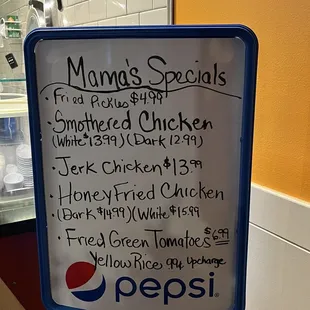 Mama's Specials
· Fried Pickles $4.99
· Smothered Chicken
(White $13.99) (Dark 12.99)
· Jerk Chicken $13.99
· Honey Fried Chicken
· (Dark $14.99) (White $15.99
· Fried Green Tomatoes $6.99
Yellow Rice 99¢ Upcharge
pepsi